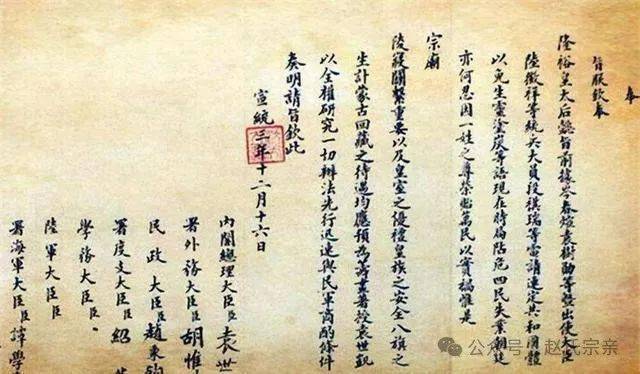 奉
旨朕欽奉
隆裕皇太后懿旨前據岑春煊袁樹勛等暨出使大臣
陸徵祥等統兵大員段祺瑞等電請速定共和國體
以免生靈塗炭等語現在時局阽危四民失業朝廷
亦何忍因一姓之尊榮貽萬民以實禍惟是
宗廟
陵寢關繫重要以及皇室之優禮皇族之安全八旗之
生計蒙古回藏之待遇均應預為籌畫著授袁世凱
以全權研究一切辦法先行迅速與民軍商酌條件
奏明請旨欽此
宣統三年十二月十六日
內閣總理大臣臣袁世
署外務大臣臣胡惟
民政大臣臣趙秉鈞
署度支大臣臣紹
學務大臣臣
陸軍大臣臣
署海軍大臣臣譚學
公众号 · 赵氏宗亲